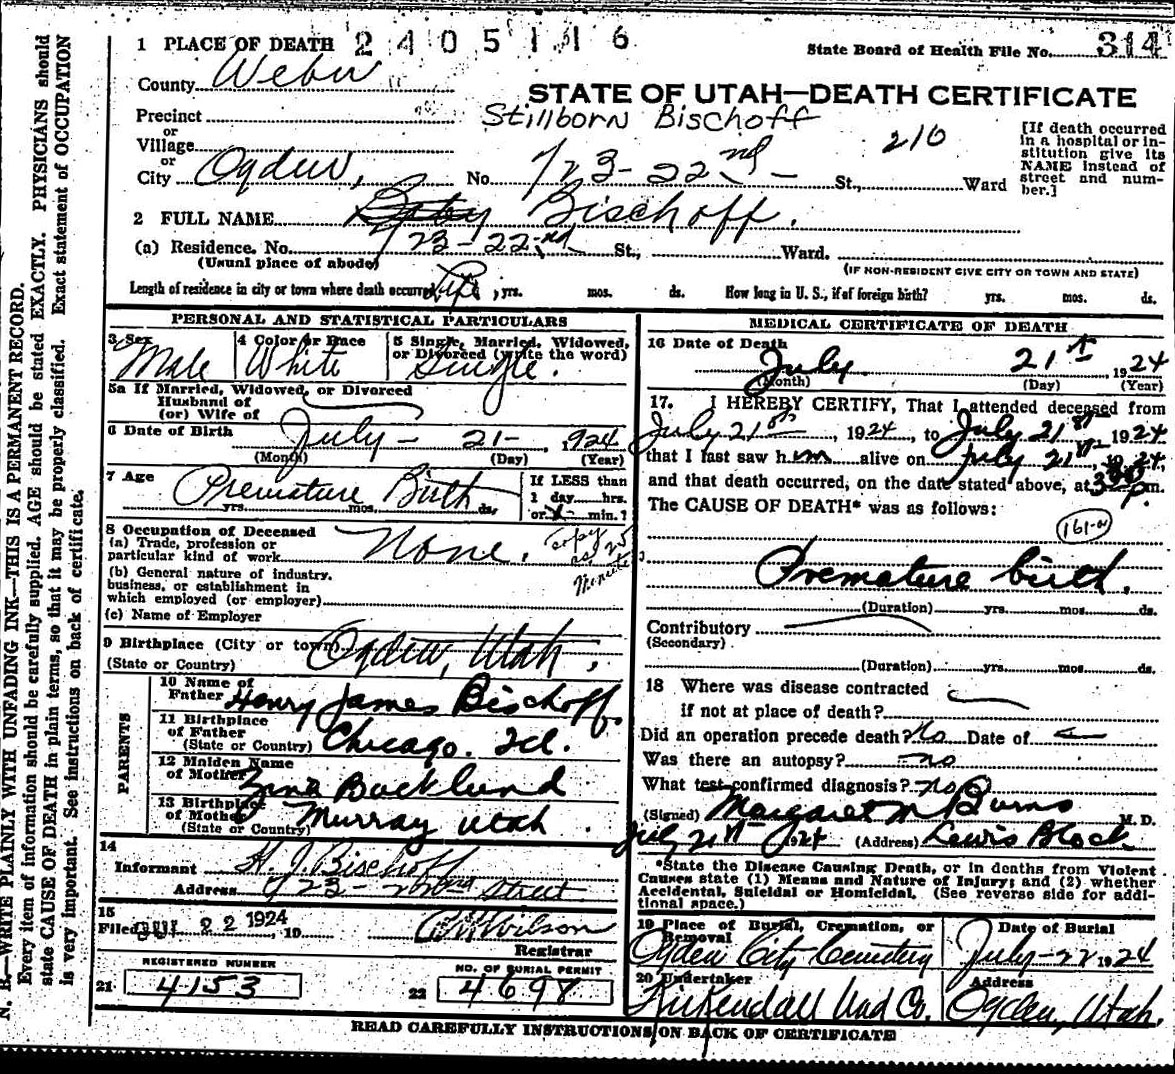 1 PLACE OF DEATH 2405116 State Board of Health File No. 314
County Weber
STATE OF UTAH—DEATH CERTIFICATE
Precinct Stillborn Bischoff
or
Village 210
or
City Ogden, No. 723-22nd St., Ward
[If death occurred
in a hospital or in-
stitution give its
NAME instead of
street and num-
ber.]
2 FULL NAME Baby Bischoff.
(a) Residence. No. 723-22nd St., Ward.
(Usual place of abode) (IF NON-RESIDENT GIVE CITY OR TOWN AND STATE)
Length of residence in city or town where death occurred Life, yrs. mos. ds. How long in U. S., if of foreign birth? yrs. mos. ds.
PERSONAL AND STATISTICAL PARTICULARS
3 Sex 4 Color or Race 5 Single, Married, Widowed,
or Divorced (write the word)
Male White Single.
5a If Married, Widowed, or Divorced
Husband of
(or) Wife of
6 Date of Birth July - 21 - 1924
(Month) (Day) (Year)
7 Age Premature Birth
yrs. mos. ds.
If LESS than
1 day hrs.
or X min.?
8 Occupation of Deceased
(a) Trade, profession or
particular kind of work None.
copy
as is
(b) General nature of industry.
business, or establishment in
which employed (or employer)
(c) Name of Employer
9 Birthplace (City or town) Ogden, Utah.
(State or Country)
PARENTS
10 Name of
Father Henry James Bischoff.
11 Birthplace
of Father
(State or Country) Chicago. Ill.
12 Maiden Name
of Mother Zina Backlund
13 Birthplace
of Mother
(State or Country) Murray Utah.
14
Informant H. J. Bischoff
Address 723-22nd Street
15
Filed JUL 22 1924, 19 Wilson
Registrar
REGISTERED NUMBER NO. OF BURIAL PERMIT
21 4153 22 4698
MEDICAL CERTIFICATE OF DEATH
16 Date of Death
July 21st, 1924
(Month) (Day) (Year)
17. I HEREBY CERTIFY, That I attended deceased from
July 21st, 1924, to July 21st 1924
that I last saw him alive on July 21st, 1924,
and that death occurred, on the date stated above, at p.m.
The CAUSE OF DEATH* was as follows:
161-a
Premature birth.
(Duration) yrs. mos. ds.
Contributory
(Secondary)
(Duration) yrs. mos. ds.
18 Where was disease contracted
if not at place of death?
Did an operation precede death? No Date of
Was there an autopsy? no
What test confirmed diagnosis? No
(Signed) Margaret M Burns M. D.
July 21st 1924 (Address) Lewis Block
*State the Disease Causing Death, or in deaths from Violent
Causes state (1) Means and Nature of Injury; and (2) whether
Accidental, Suicidal or Homicidal. (See reverse side for addi-
tional space.)
19 Place of Burial, Cremation, or
Removal Date of Burial
Ogden City Cemetery July-22 1924
20 Undertaker Address
Kirkendall Und Co. Ogden, Utah.
READ CAREFULLY INSTRUCTIONS ON BACK OF CERTIFICATE
N. B.—WRITE PLAINLY WITH UNFADING INK—THIS IS A PERMANENT RECORD.
Every item of information should be carefully supplied. AGE should be stated EXACTLY. PHYSICIANS should
state CAUSE OF DEATH in plain terms, so that it may be properly classified. Exact statement of OCCUPATION
is very important. See instructions on back of certificate.